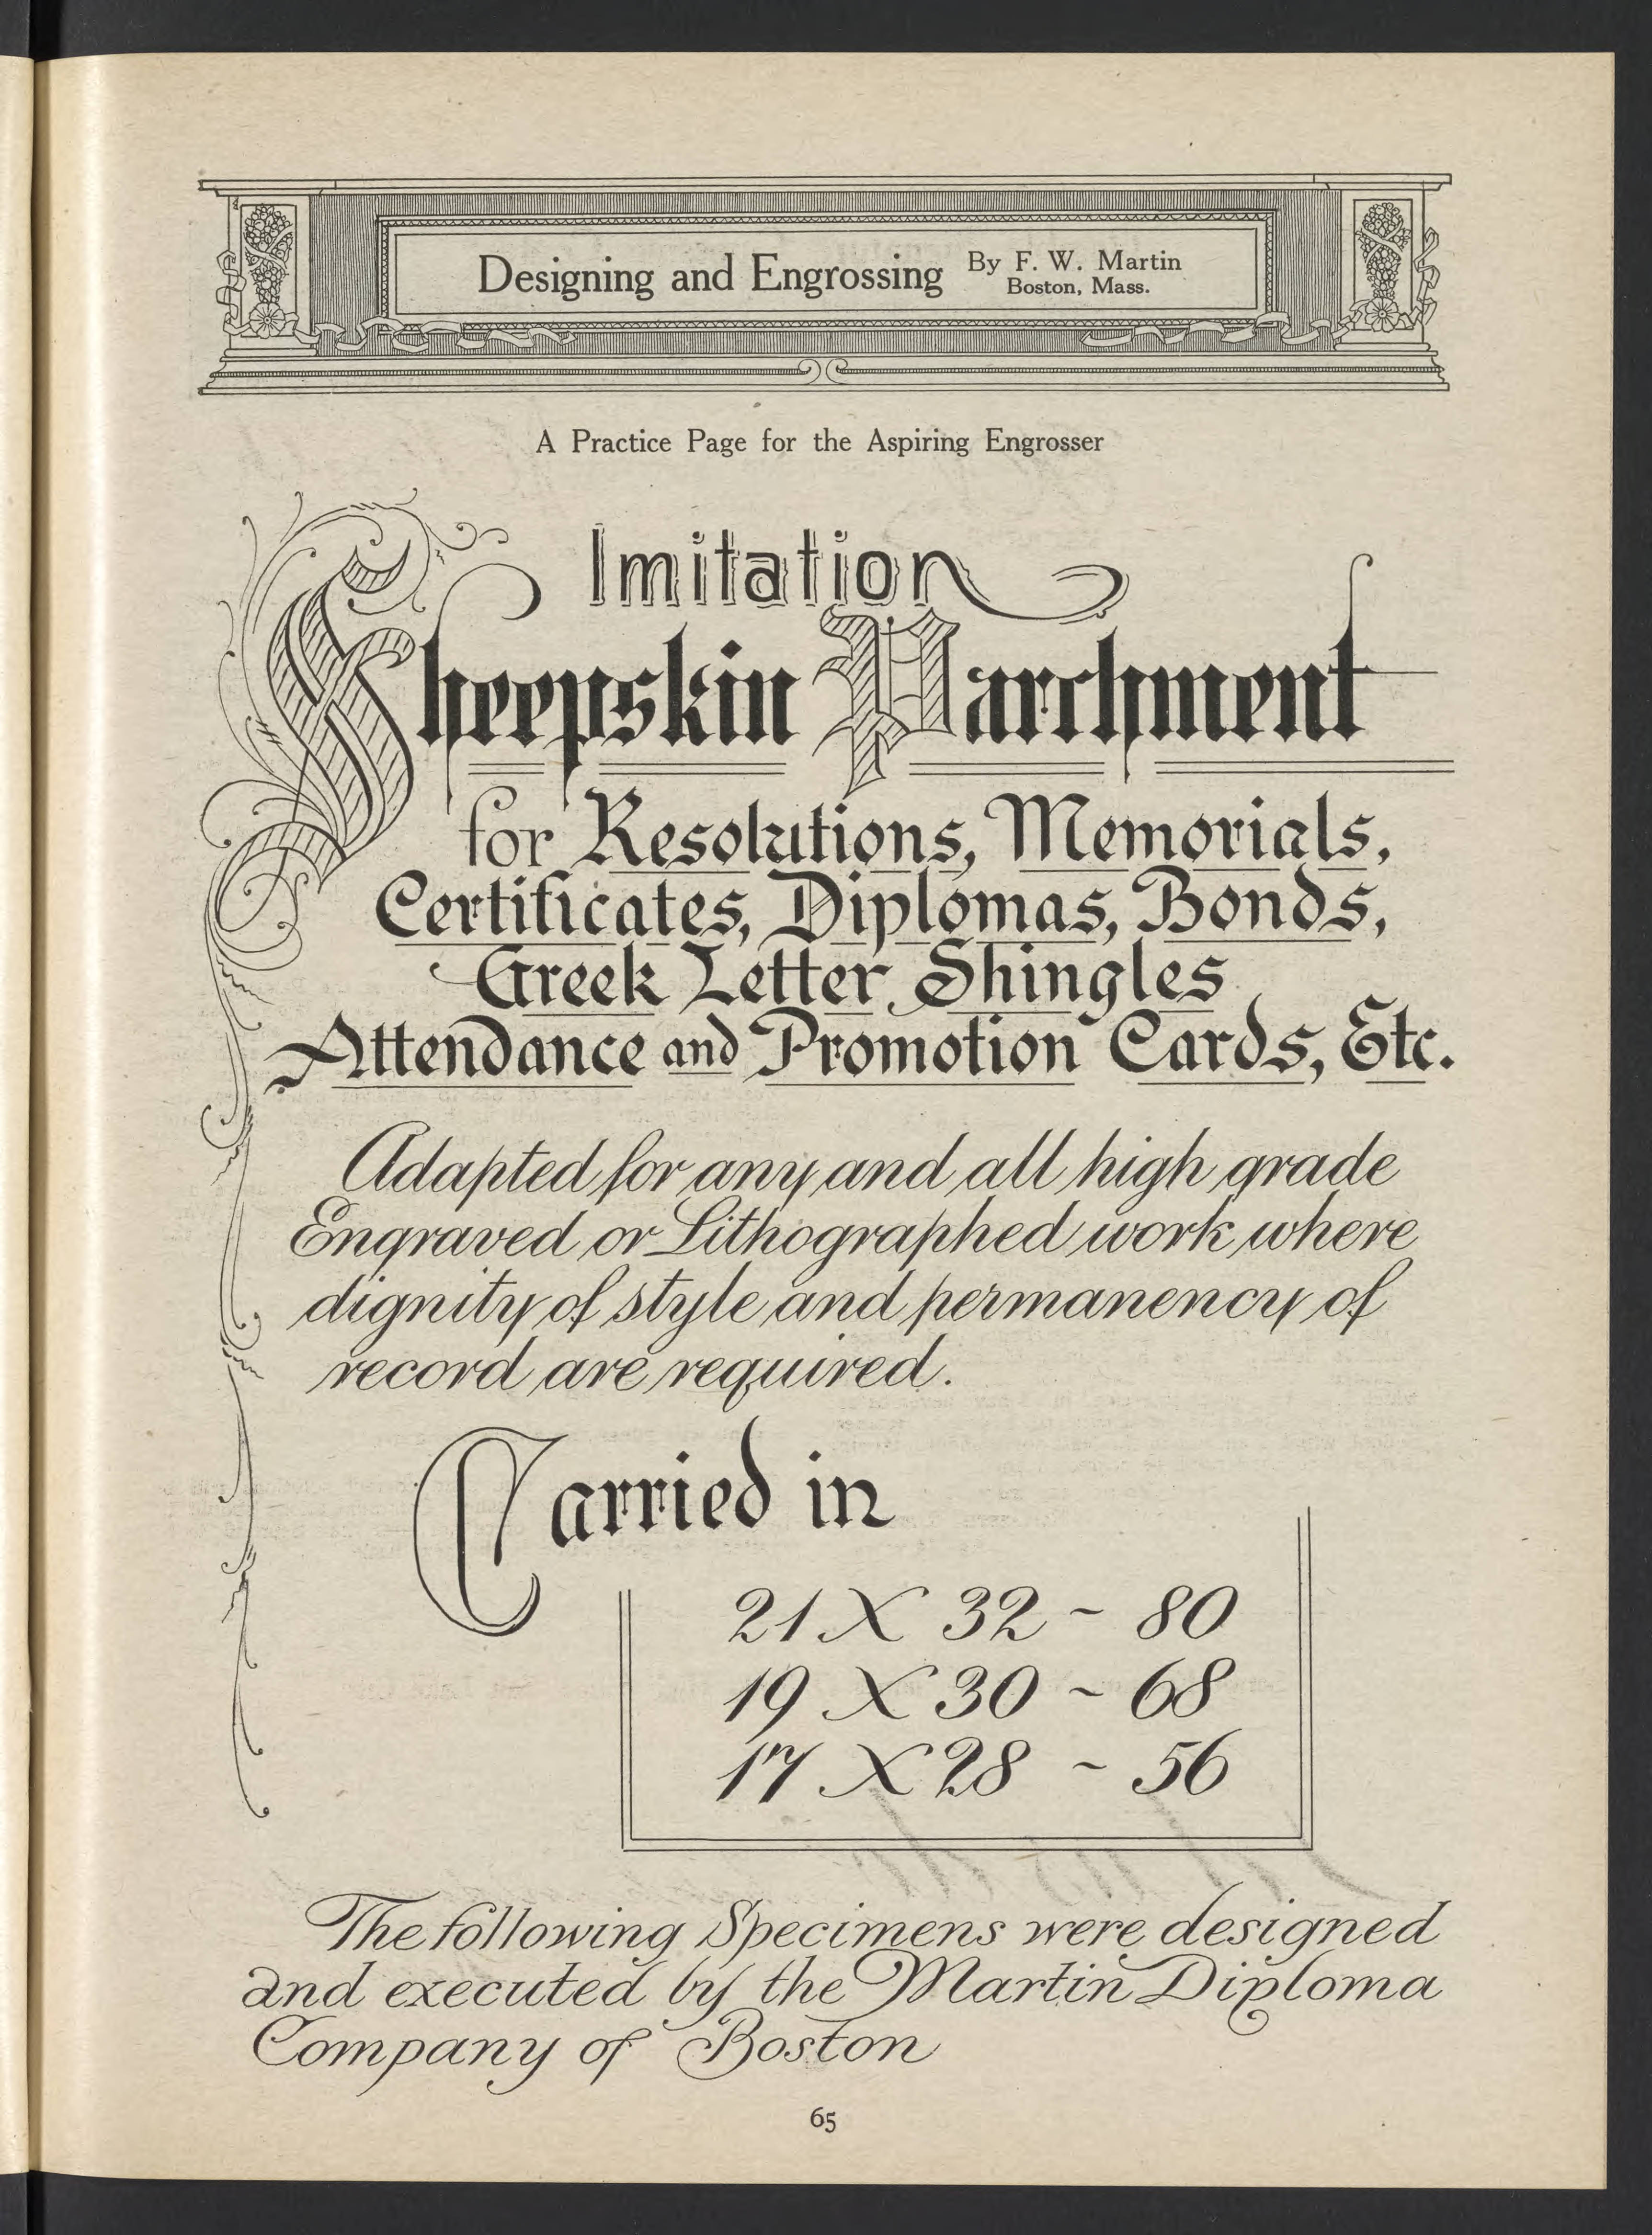 Designing and Engrossing By F. W. Martin
Boston, Mass.
A Practice Page for the Aspiring Engrosser
Imitation
Sheepskin Parchment
for Resolutions, Memorials,
Certificates, Diplomas, Bonds,
Greek Letter Shingles
Attendance and Promotion Cards, Etc.
Adapted for any and all high grade
Engraved or Lithographed work where
dignity of style and permanency of
record are required.
Carried in
21 X 32 - 80
19 X 30 - 68
17 X 28 - 56
The following Specimens were designed
and executed by the Martin Diploma
Company of Boston
65